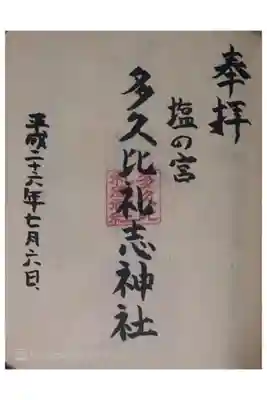 奉拝
塩の宮
多久比礼志神社
平成二十六年七月六日、